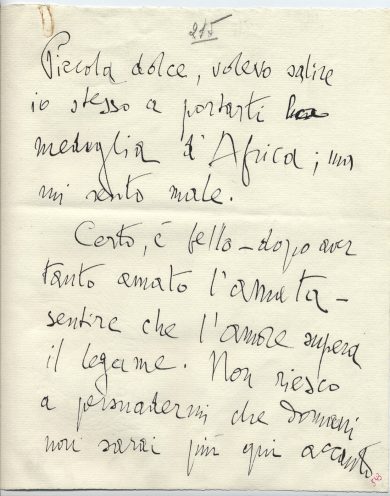 215
Piccola dolce, volevo salire
io stesso a portarti la
medaglia d'Africa; ma
mi sento male.
Certo, è bello – dopo aver
tanto amato l'amata –
sentire che l'amore supera
il legame. Non riesco
a persuadermi che domani
non sarai più qui accanto